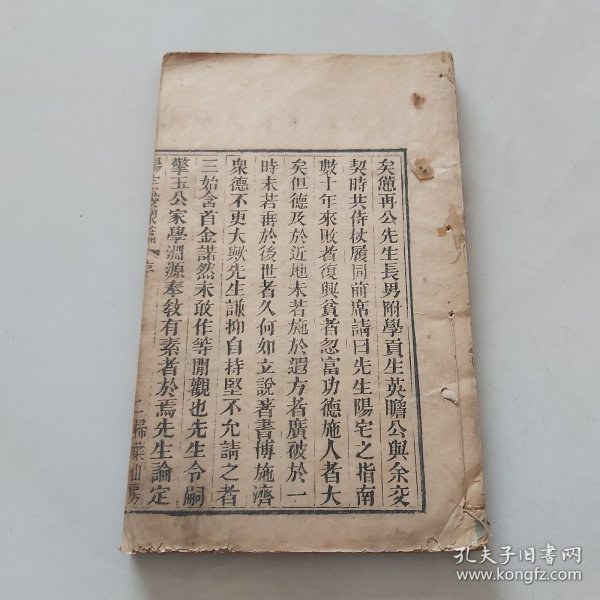 矣適再公先生長男附學貢生英瞻公與余交
契時共侍杖履同前席請曰先生陽宅之指南
數十年來敗者復興貧者忽富功德施人者大
矣但德及於近地未若施於遐方者廣被於一
時未若垂於後世者久何如立說著書博施濟
衆德不更大歟先生謙抑自持堅不允請之者
三始含首金諾然未敢作等閒觀也先生令嗣
擎玉公家學淵源奉敎有素者於焉先生論定
二 掃葉山房
孔夫子旧书网
www.kongfz.com